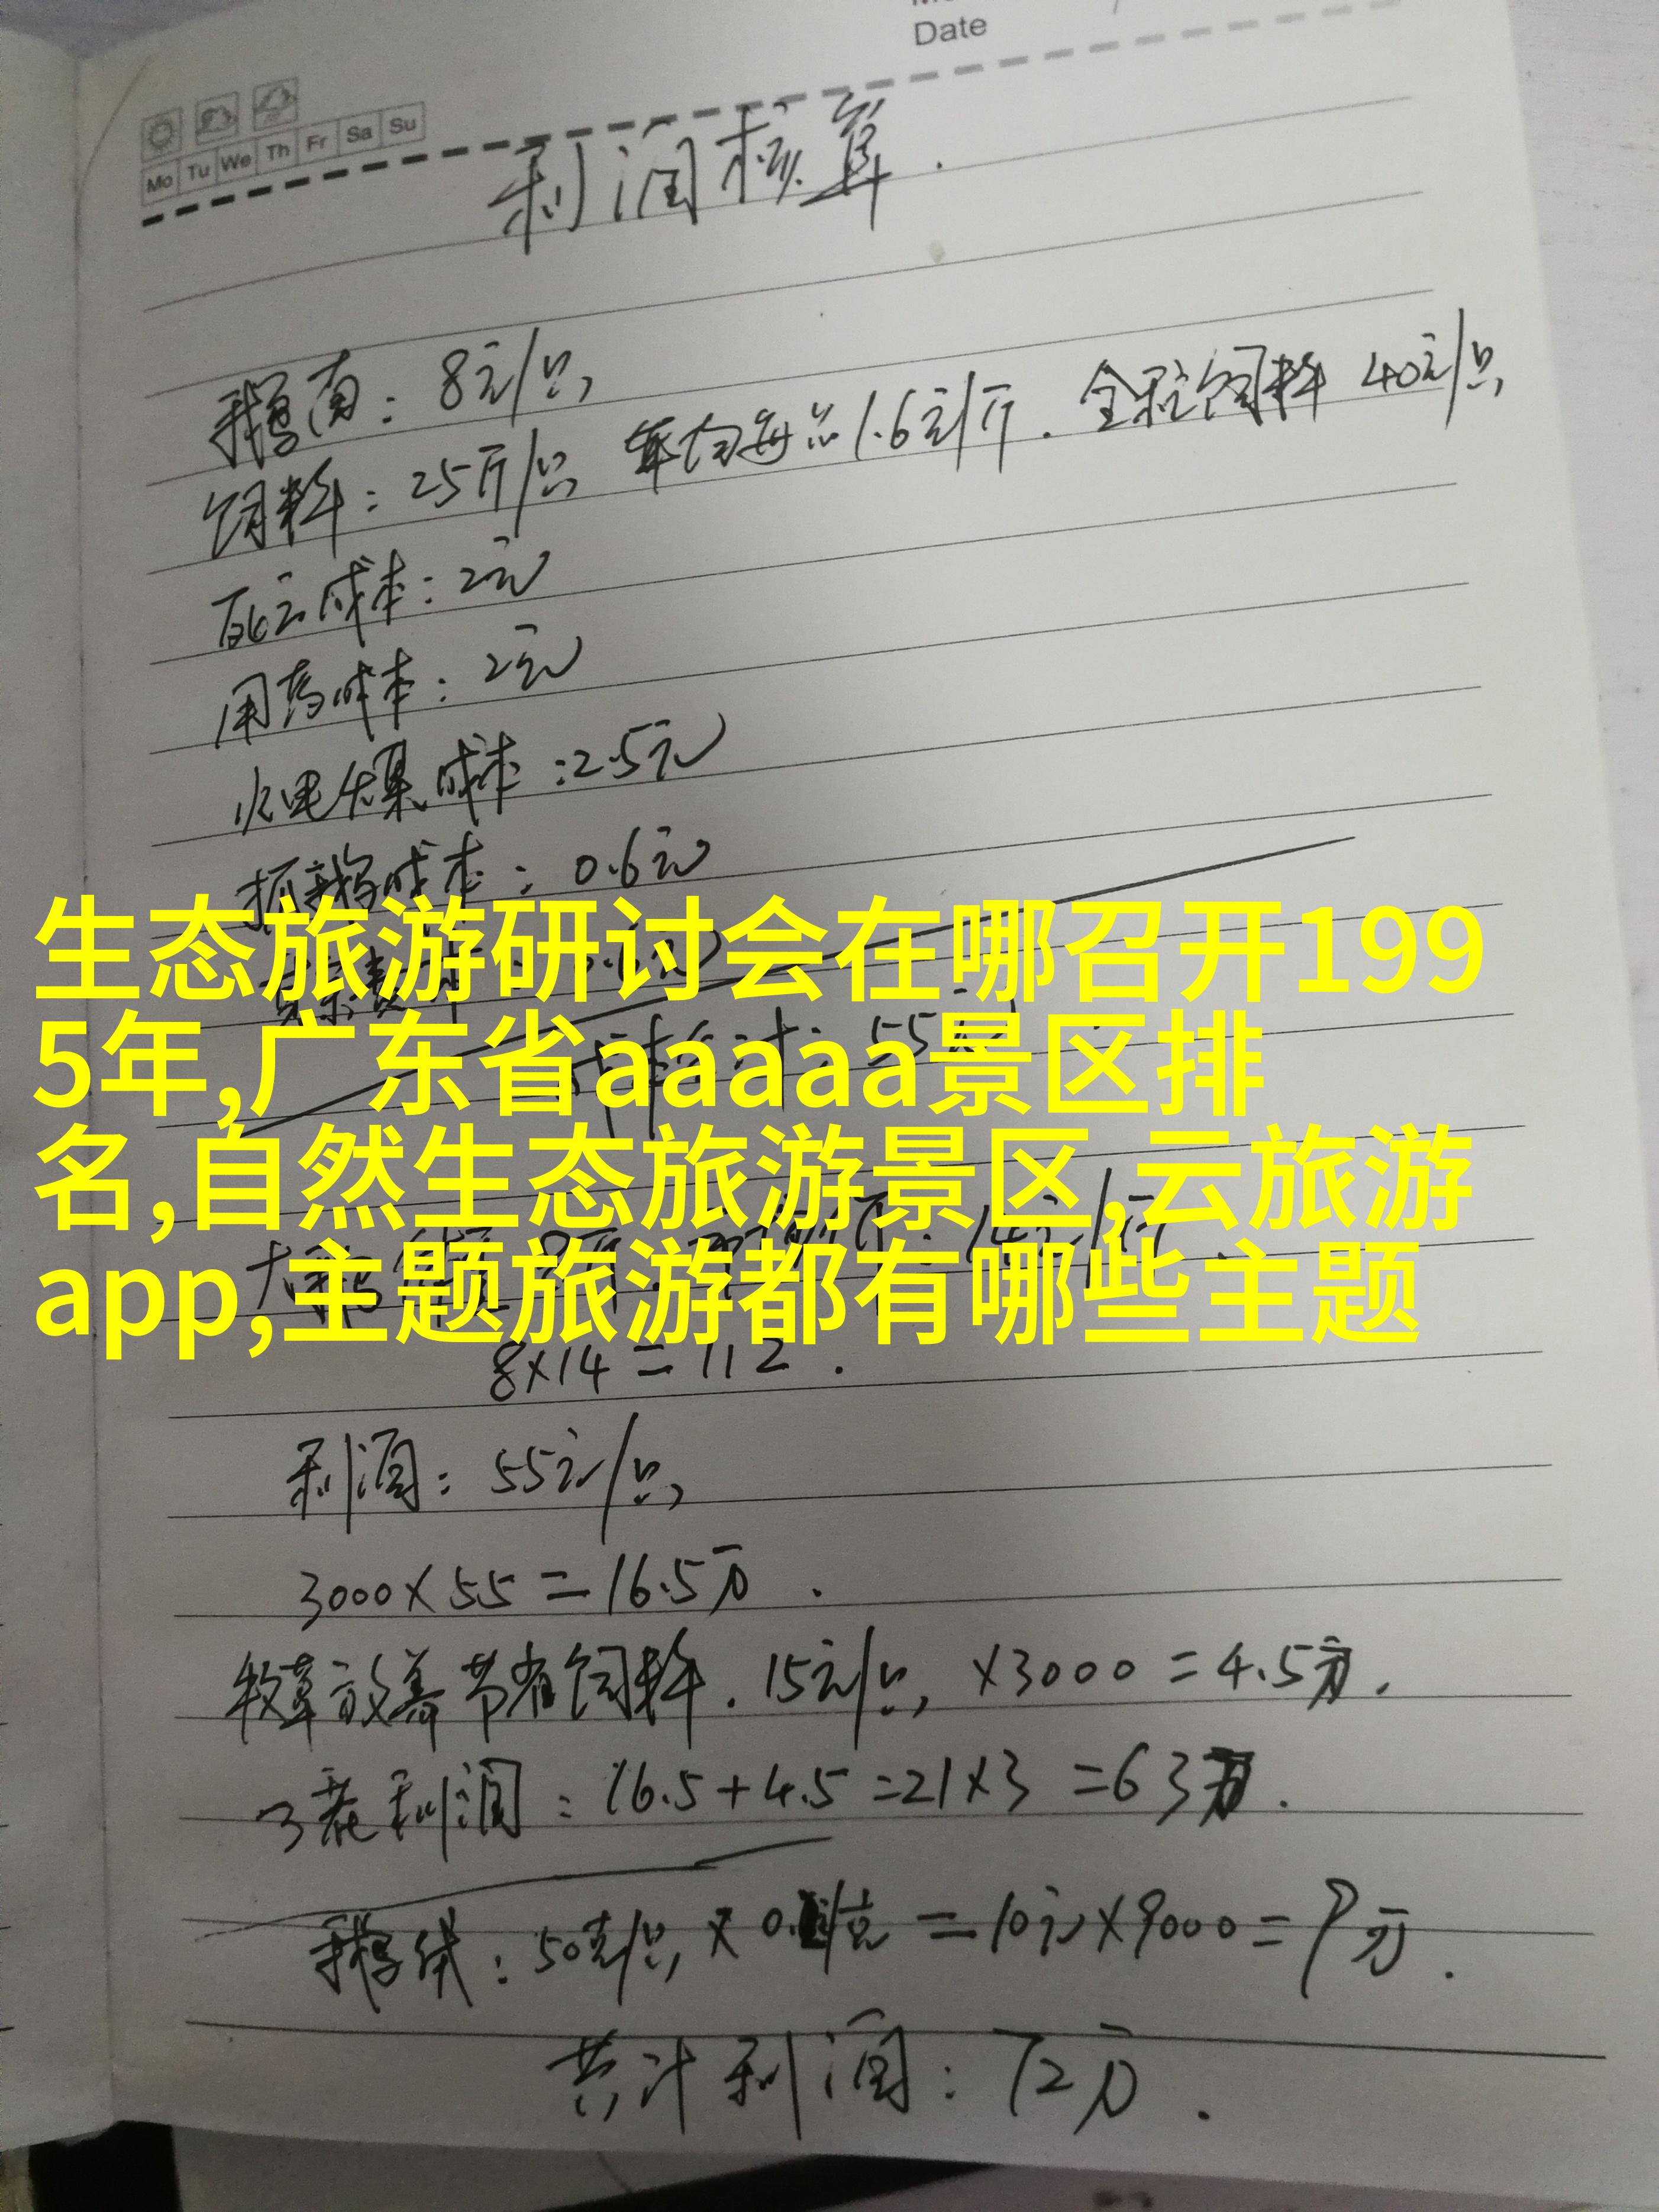 Date
Mo Tu We Th Fr Sa Su
利润核算.
鹅苗: 8元/只,
饲料: 25斤/只, 1.6元/斤. 全程饲料 40元/只,
死亡成本: 2元
用药成本: 2元
水电煤成本: 2.5元
抓鹅成本: 0.6元
生态旅游研讨会在哪召开199
5年,广东省aaaaa景区排
名,自然生态旅游景区,云旅游
app,主题旅游都有哪些主题
8×14=112.
利润: 55元/只,
3000×55=16.5万.
牧草放养节省饲料. 15元/只, ×3000=4.5万.
3茬利润: 16.5+4.5=21×3=63万.
鹅绒: 50克/只, × =10元×9000=9万.
共计利润: 72万.